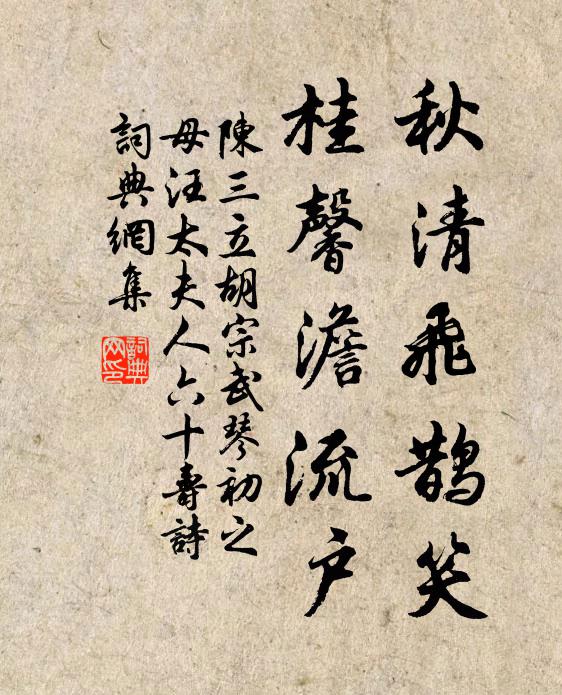 秋清飛鵲笑
桂馨澹流戶
陳三立胡宗武琴初之
母汪太夫人六十壽詩
詞典網集
詞典網印